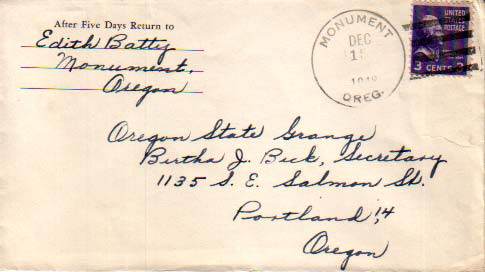 After Five Days Return to
Edith Batty
Monument,
Oregon
MONUMENT
DEC
OREG.
UNITED
STATES
POSTAGE
3 CENTS 3
Oregon State Grange
Bertha J. Beck, Secretary
1135 S. E. Salmon St.
Portland, 14
Oregon